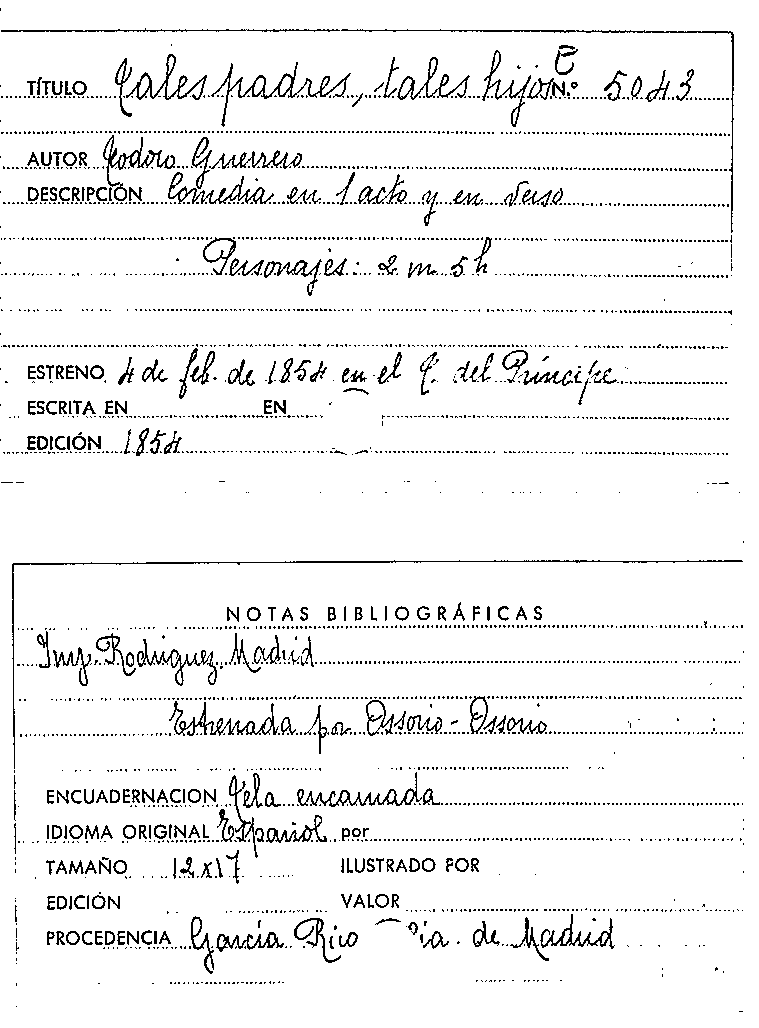 TÍTULO Tales padres, tales hijos N.º 5043
AUTOR Teodoro Guerrero
DESCRIPCIÓN Comedia en 1 acto y en verso
Personajes: 2 m 5 h
ESTRENO 4 de feb. de 1854 en el T. del Príncipe
ESCRITA EN EN
EDICIÓN 1854
NOTAS BIBLIOGRÁFICAS
Imp. Rodriguez Madrid
Estrenada por Ossorio - Ossorio
ENCUADERNACION Tela encarnada
IDIOMA ORIGINAL Español por
TAMAÑO 12 x 17 ILUSTRADO POR
EDICIÓN VALOR
PROCEDENCIA García Rico de Madrid